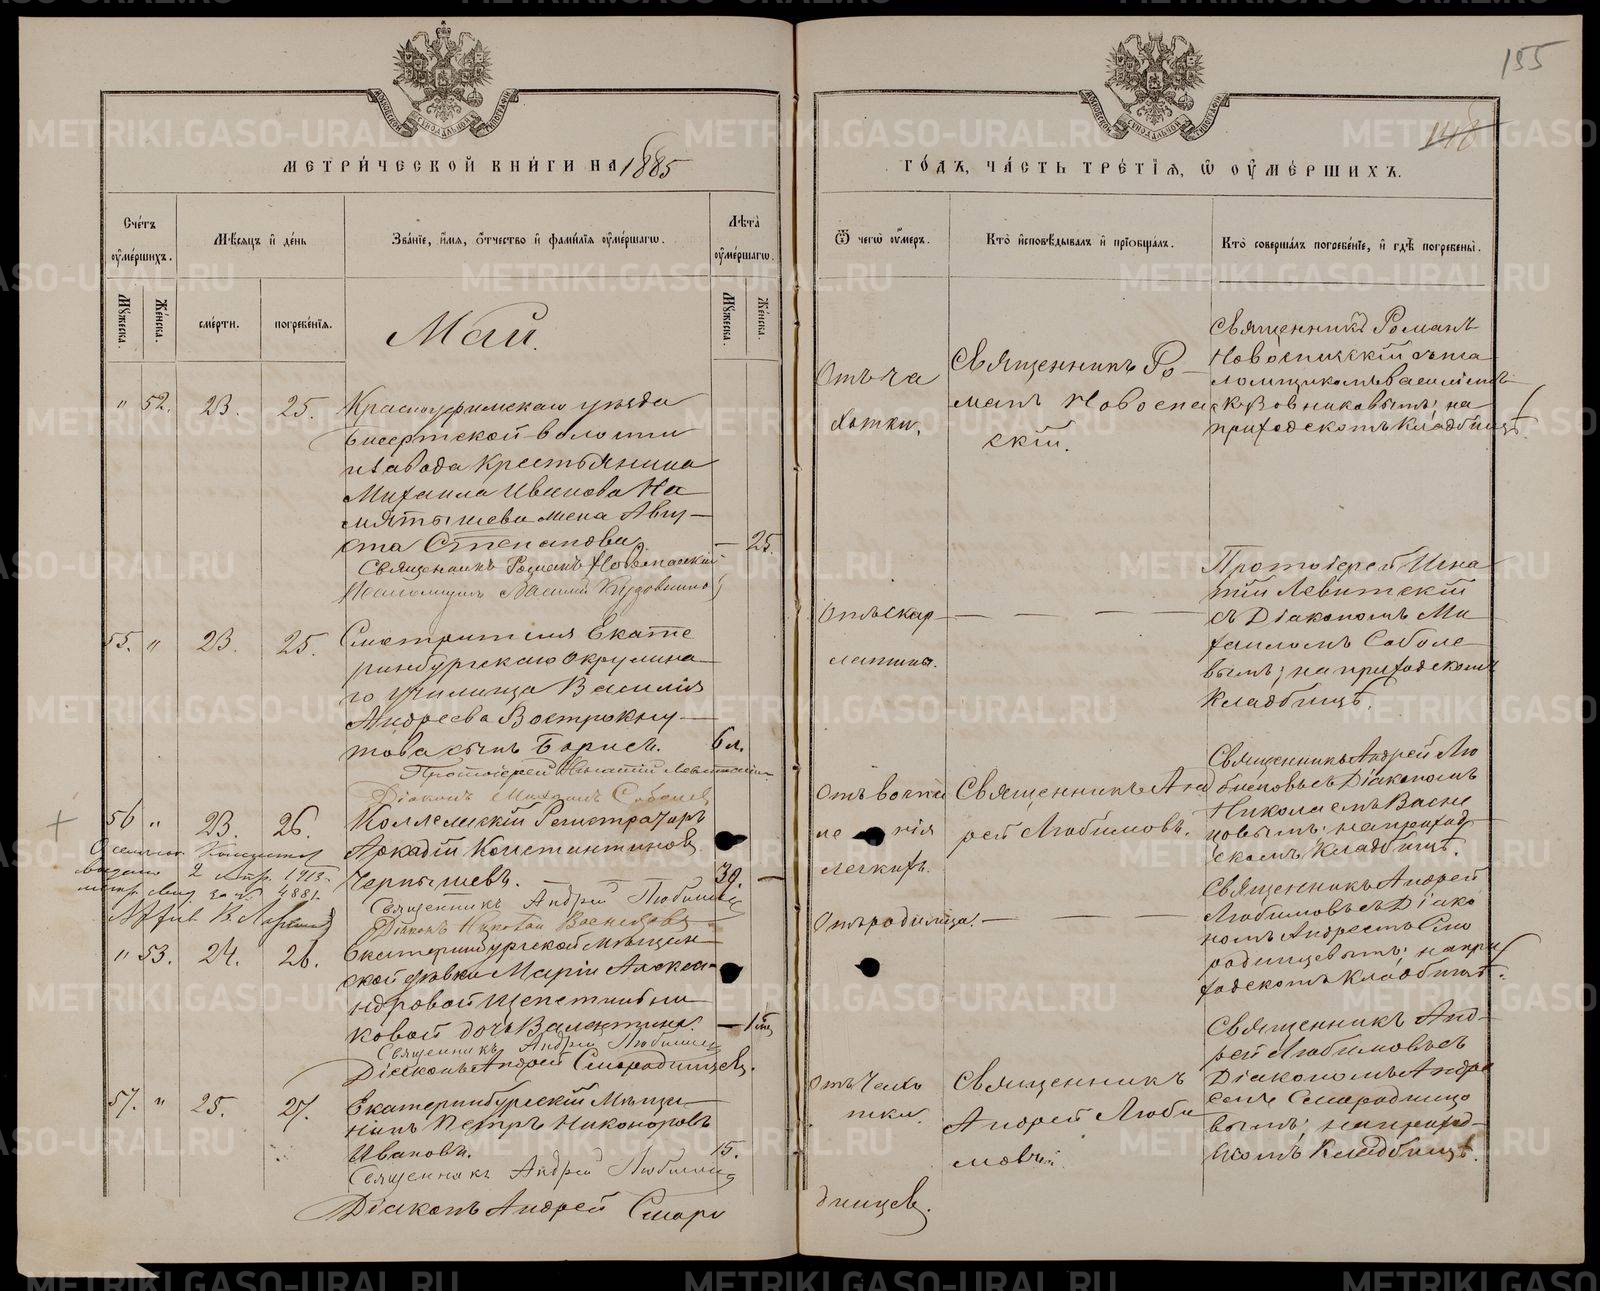 155
148
МЕТРИ́ЧЕСКОЙ КНИ́ГИ НА 1885
ГО́ДЪ, ЧА́СТЬ ТРЕ́ТІѦ, Ѡ ОУ҆МЕ́РШИХЪ.
Сче́тъ оу҆ме́ршихъ.
Мѣ́сѧцъ и҆ де́нь
Зва́нїе, и҆́мѧ, ѻ҆́тчество и҆ фами́лїѧ оу҆ме́ршагѡ.
Лѣ́та оу҆ме́ршагѡ.
Ѿ чегѡ̀ оу҆́меръ.
Кто̀ и҆сповѣ́дывалъ и҆ прїѡбща́лъ.
Кто̀ соверша́лъ погребе́нїе, и҆ гдѣ̀ погребены̀.
Мꙋ́жеска.
Же́нска.
сме́рти.
погребе́нїѧ.
Мꙋ́жеска.
Же́нска.
Май.
" 52. 23. 25.
Красноуфимскаго уѣзда
Бисертской волости
и завода крестьянина
Михаила Иванова На
мятышева жена Авгу-
ста Степанова.
— 25.
Священникъ Романъ Новоспасскій
Псаломщикъ Василій Кузовниковъ
Отъ ча
хотки.
Священникъ Ро-
манъ Новоспас
скій.
Священникъ Романъ
Новоспасскій съ пса
ломщикомъ Василіемъ
Кузовниковымъ; на
приходскомъ кладбищѣ.
55. " 23. 25.
Смотрителя Екате
ринбургскаго окружна-
го училища Василія
Андреева Вострокну-
това сынъ Борисъ.
6 л.
Протоіерей Игнатій Левитскій
Діаконъ Михаилъ Соболевъ
Отъ скар-
латины.
— — — —
Протоіерей Игна
тій Левитскій
съ Діакономъ Ми
хаиломъ Соболе
вымъ; на приходскомъ
кладбищѣ.
56 " 23. 26.
Коллежскій Регистраторъ
Аркадій Константиновъ
Чернышевъ.
39. —
Священникъ Андрей Любимовъ
Діаконъ Николай Васнецовъ
2 Апр. 1913
за № 4881.
Священникъ Анд
рей Любимовъ.
легкихъ.
Священникъ Андрей Лю
бимовъ съ Діакономъ
Николаемъ Васне
цовымъ; на приход
скомъ кладбищѣ.
" 53. 24. 26.
Екатеринбургской мѣщан-
ской дѣвки Маріи Алекса-
ндровой Щепетильни
ковой дочь Валентина.
Священникъ Андрей Любимовъ
Діаконъ Андрей Смородинцевъ.
Отъ родимца. — — — —
Священникъ Андрей
Любимовъ съ Діако
номъ Андреемъ Смо
родинцевымъ; на при
ходскомъ кладбищѣ.
57. " 25. 27.
Екатеринбургскій Мѣща-
нинъ Петръ Никоноровъ
Ивановъ.
15.
Священникъ Андрей Любимовъ
Діаконъ Андрей Сморо
динцевъ.
Отъ Чахо
тки.
Священникъ
Андрей Люби
мовъ.
Священникъ Анд-
рей Любимовъ съ
Діакономъ Андре
емъ Смородинце
вымъ; на приход-
скомъ кладбищѣ.
METRIKI.GASO-URAL.RU